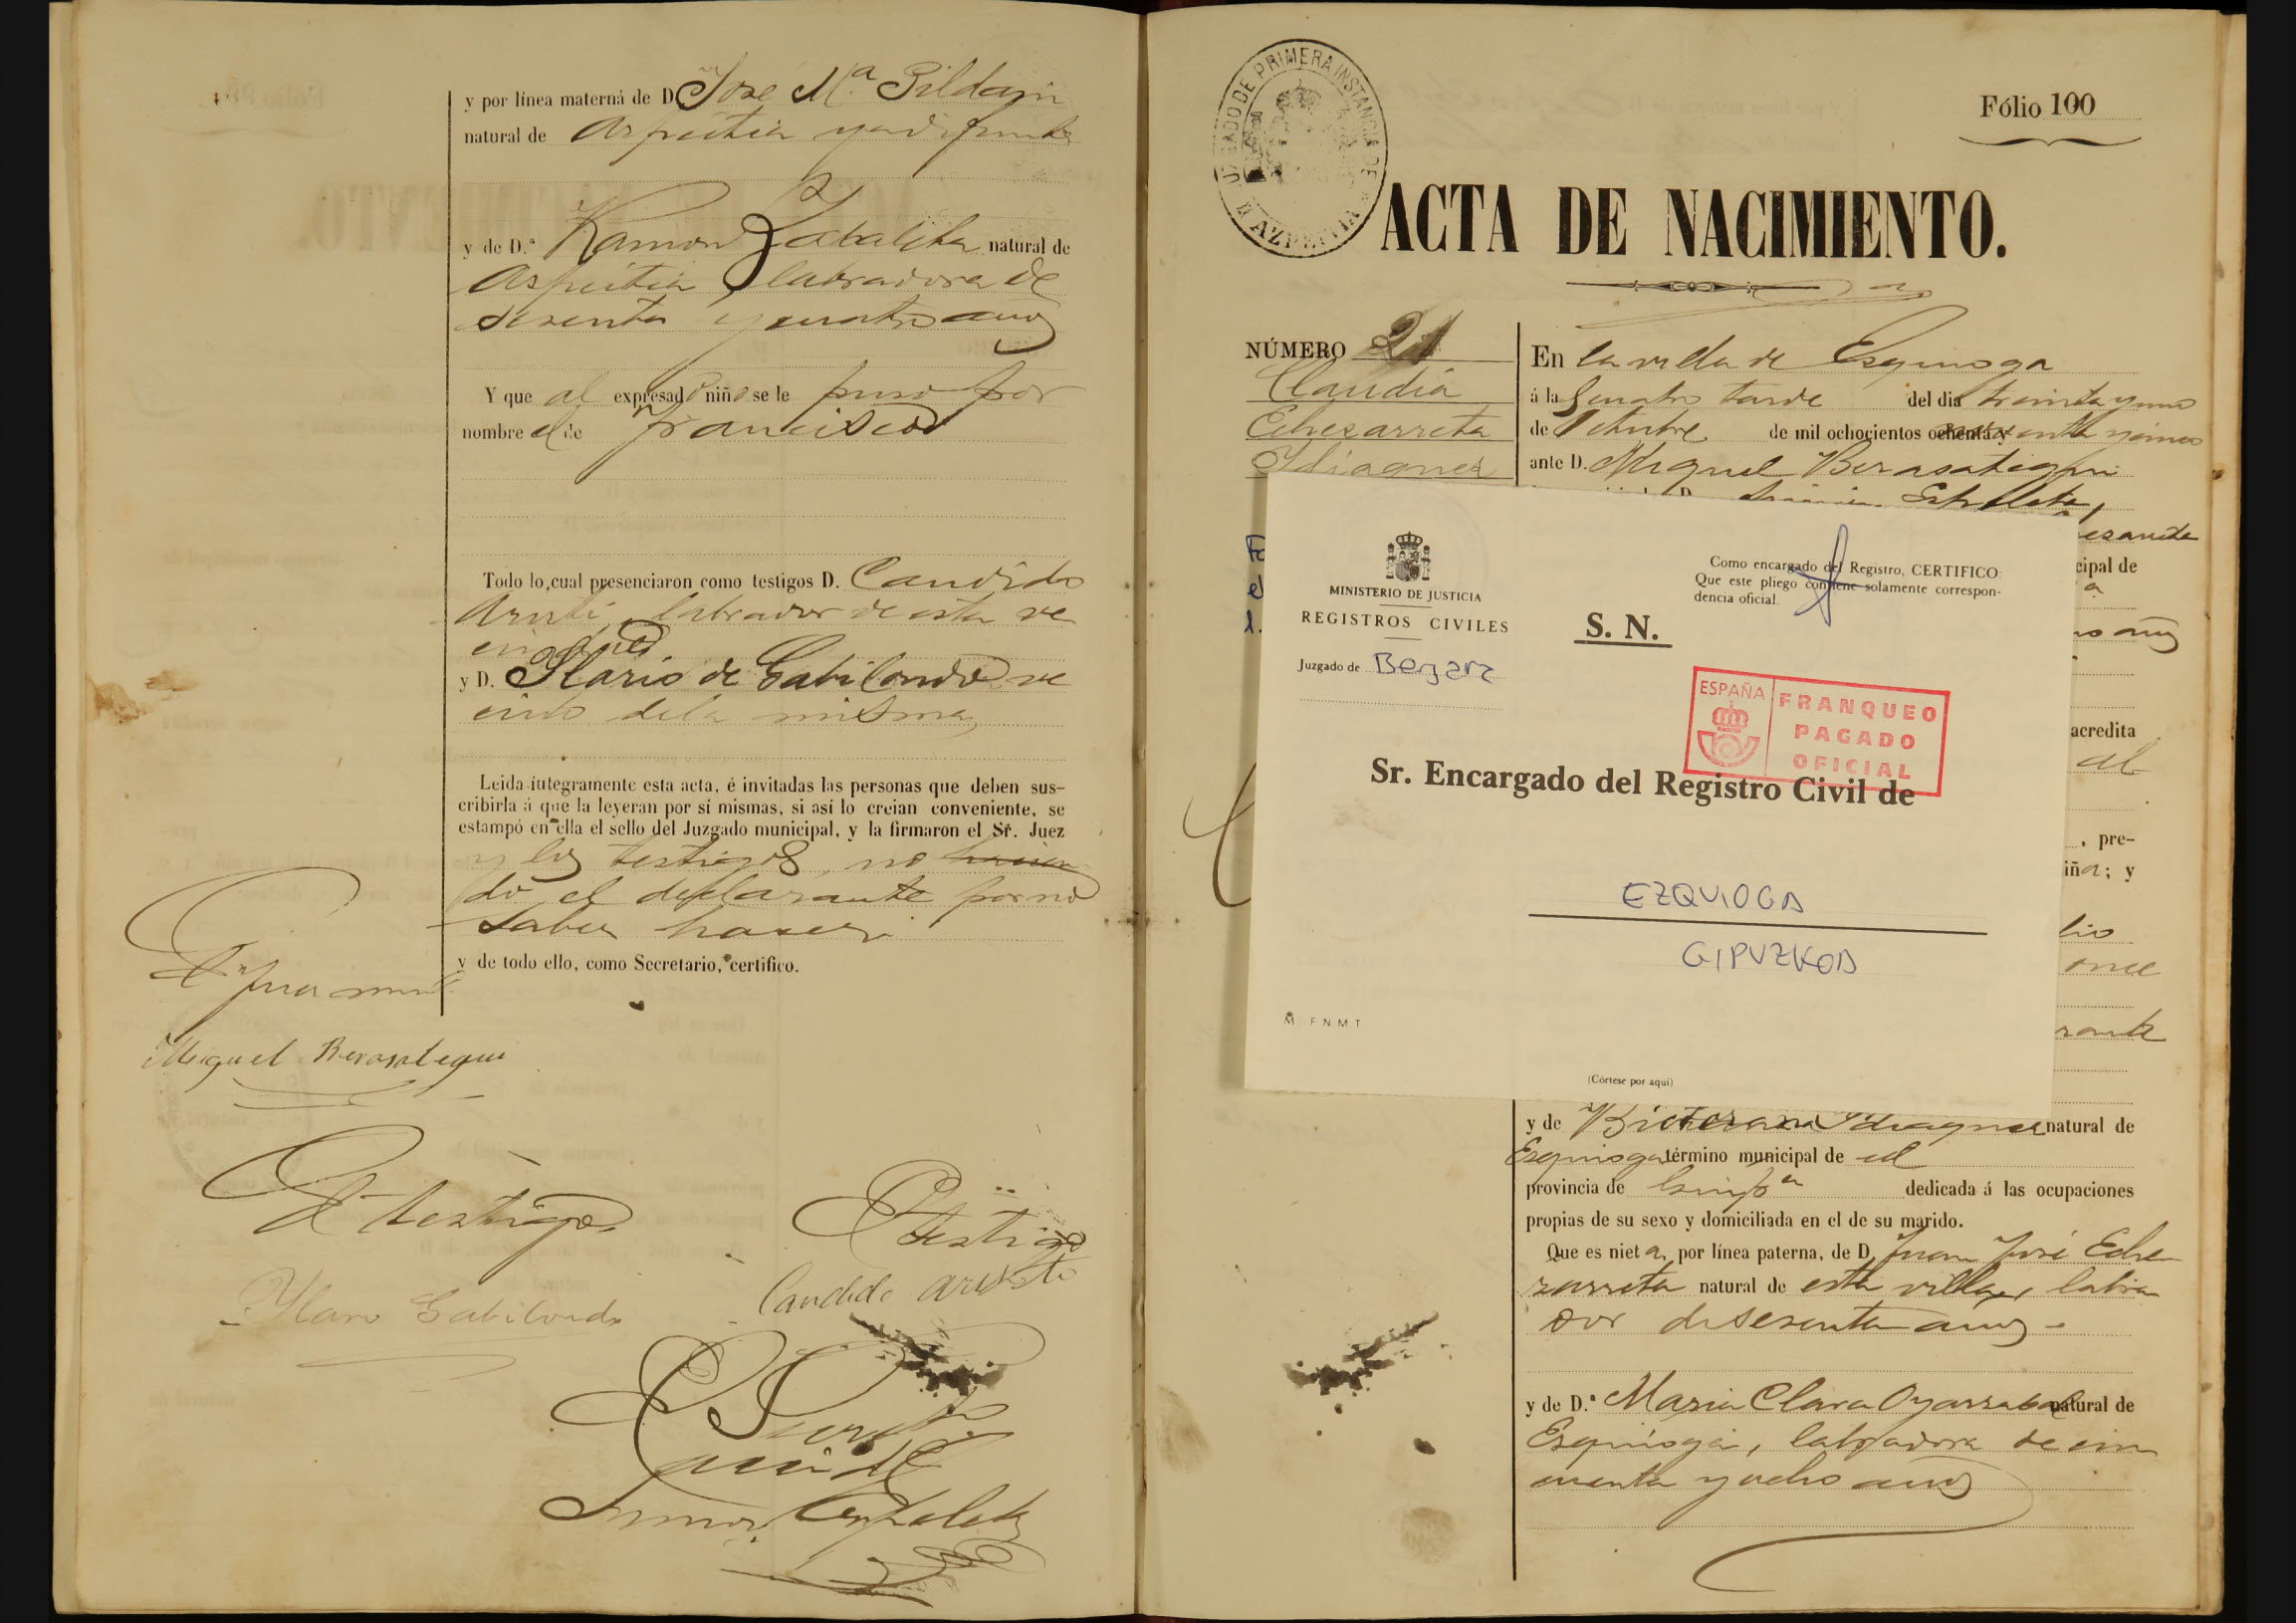 y por línea materna de D José Mª Gildain
natural de Aspeitia ya difunto
y de D.ª Ramona Zabaleta natural de
Aspeitia labradora de
sesenta y cuatro años
Y que al expresado niño se le puso por
nombre el de Francisco
Todo lo cual presenciaron como testigos D. Candido
labrador de esta ve
cindad
y D. Ilario de Gabilondo ve
cino de la misma
Leida íntegramente esta acta, é invitadas las personas que deben sus-
cribirla á que la leyeran por sí mismas, si así lo creian conveniente, se
estampó en ella el sello del Juzgado municipal, y la firmaron el Sr. Juez
y los testigos, no
do el declarante por no
saber hacer
y de todo ello, como Secretario, certifico.
Miguel Berasategui
El testigo
Testigo
Ilario Gabilondo
Candido
JUZGADO DE PRIMERA INSTANCIA DE
AZPEITIA
Fólio 100
ACTA DE NACIMIENTO.
NÚMERO 21
Claudia
Echezarreta
Idiaquez
En la villa de Esquioga
á la cuatro tarde del dia treinta y uno
de Octubre de mil ochocientos ochenta y noventa y cinco
ante D. Miguel Berasategui
cipal de
a
años
acredita
al
, pre-
iña; y
once
MINISTERIO DE JUSTICIA
REGISTROS CIVILES
Juzgado de Bergara
S. N.
Como encargado del Registro, CERTIFICO:
Que este pliego contiene solamente correspon-
dencia oficial.
ESPAÑA
FRANQUEO
PAGADO
OFICIAL
Sr. Encargado del Registro Civil de
EZQUIOGA
GIPUZKOA
M FNMT
(Córtese por aquí)
y de Bictorana Idiaquez natural de
Esquioga término municipal de id
provincia de Guipª dedicada á las ocupaciones
propias de su sexo y domiciliada en el de su marido.
Que es nieta, por línea paterna, de D. Juan José Eche
zarreta natural de esta villa, labra
dor de sesenta años
y de D.ª Maria Clara Oyarzabal natural de
Esquioga, labradora de cin
cuenta y ocho años